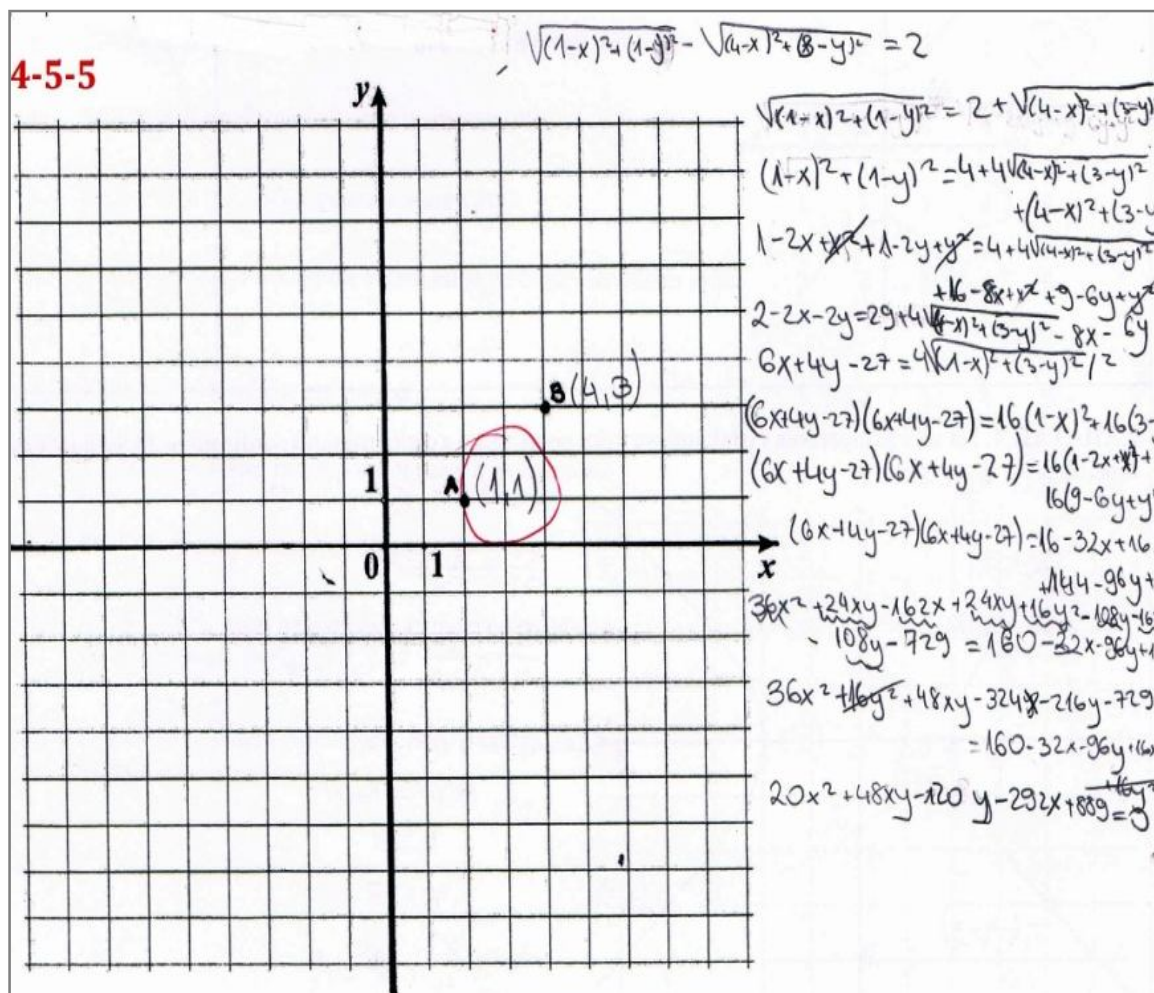 √(1-x)²+(1-y)² - √(4-x)²+(3-y)² = 2
4-5-5
y
√(1-x)²+(1-y)² = 2+√(4-x)²+(3-y)
(1-x)²+(1-y)²=4+4√(4-x)²+(3-y)²
+(4-x)²+(3-y
1-2x+x²+1-2y+y²=4+4√(4-x)²+(3-y)²
+16-8x+x²+9-6y+y²
2-2x-2y=29+4√(4-x)²+(3-y)²-8x-6y
6x+4y-27=4√(1-x)²+(3-y)² /²
B(4,3)
(6x+4y-27)(6x+4y-27)=16(1-x)²+16(3-
(6x+4y-27)(6x+4y-27)=16(1-2x+x²)+
16(9-6y+y²
1 A (1,1)
(6x+4y-27)(6x+4y-27)=16-32x+16
+144-96y+
0 1 x
36x²+24xy-162x+24xy+16y²-108y-16
-108y-729=160-32x-96y+1
36x²+16y²+48xy-324x-216y-729
=160-32x-96y+16x
+16y²
20x²+48xy-120y-292x+889=y